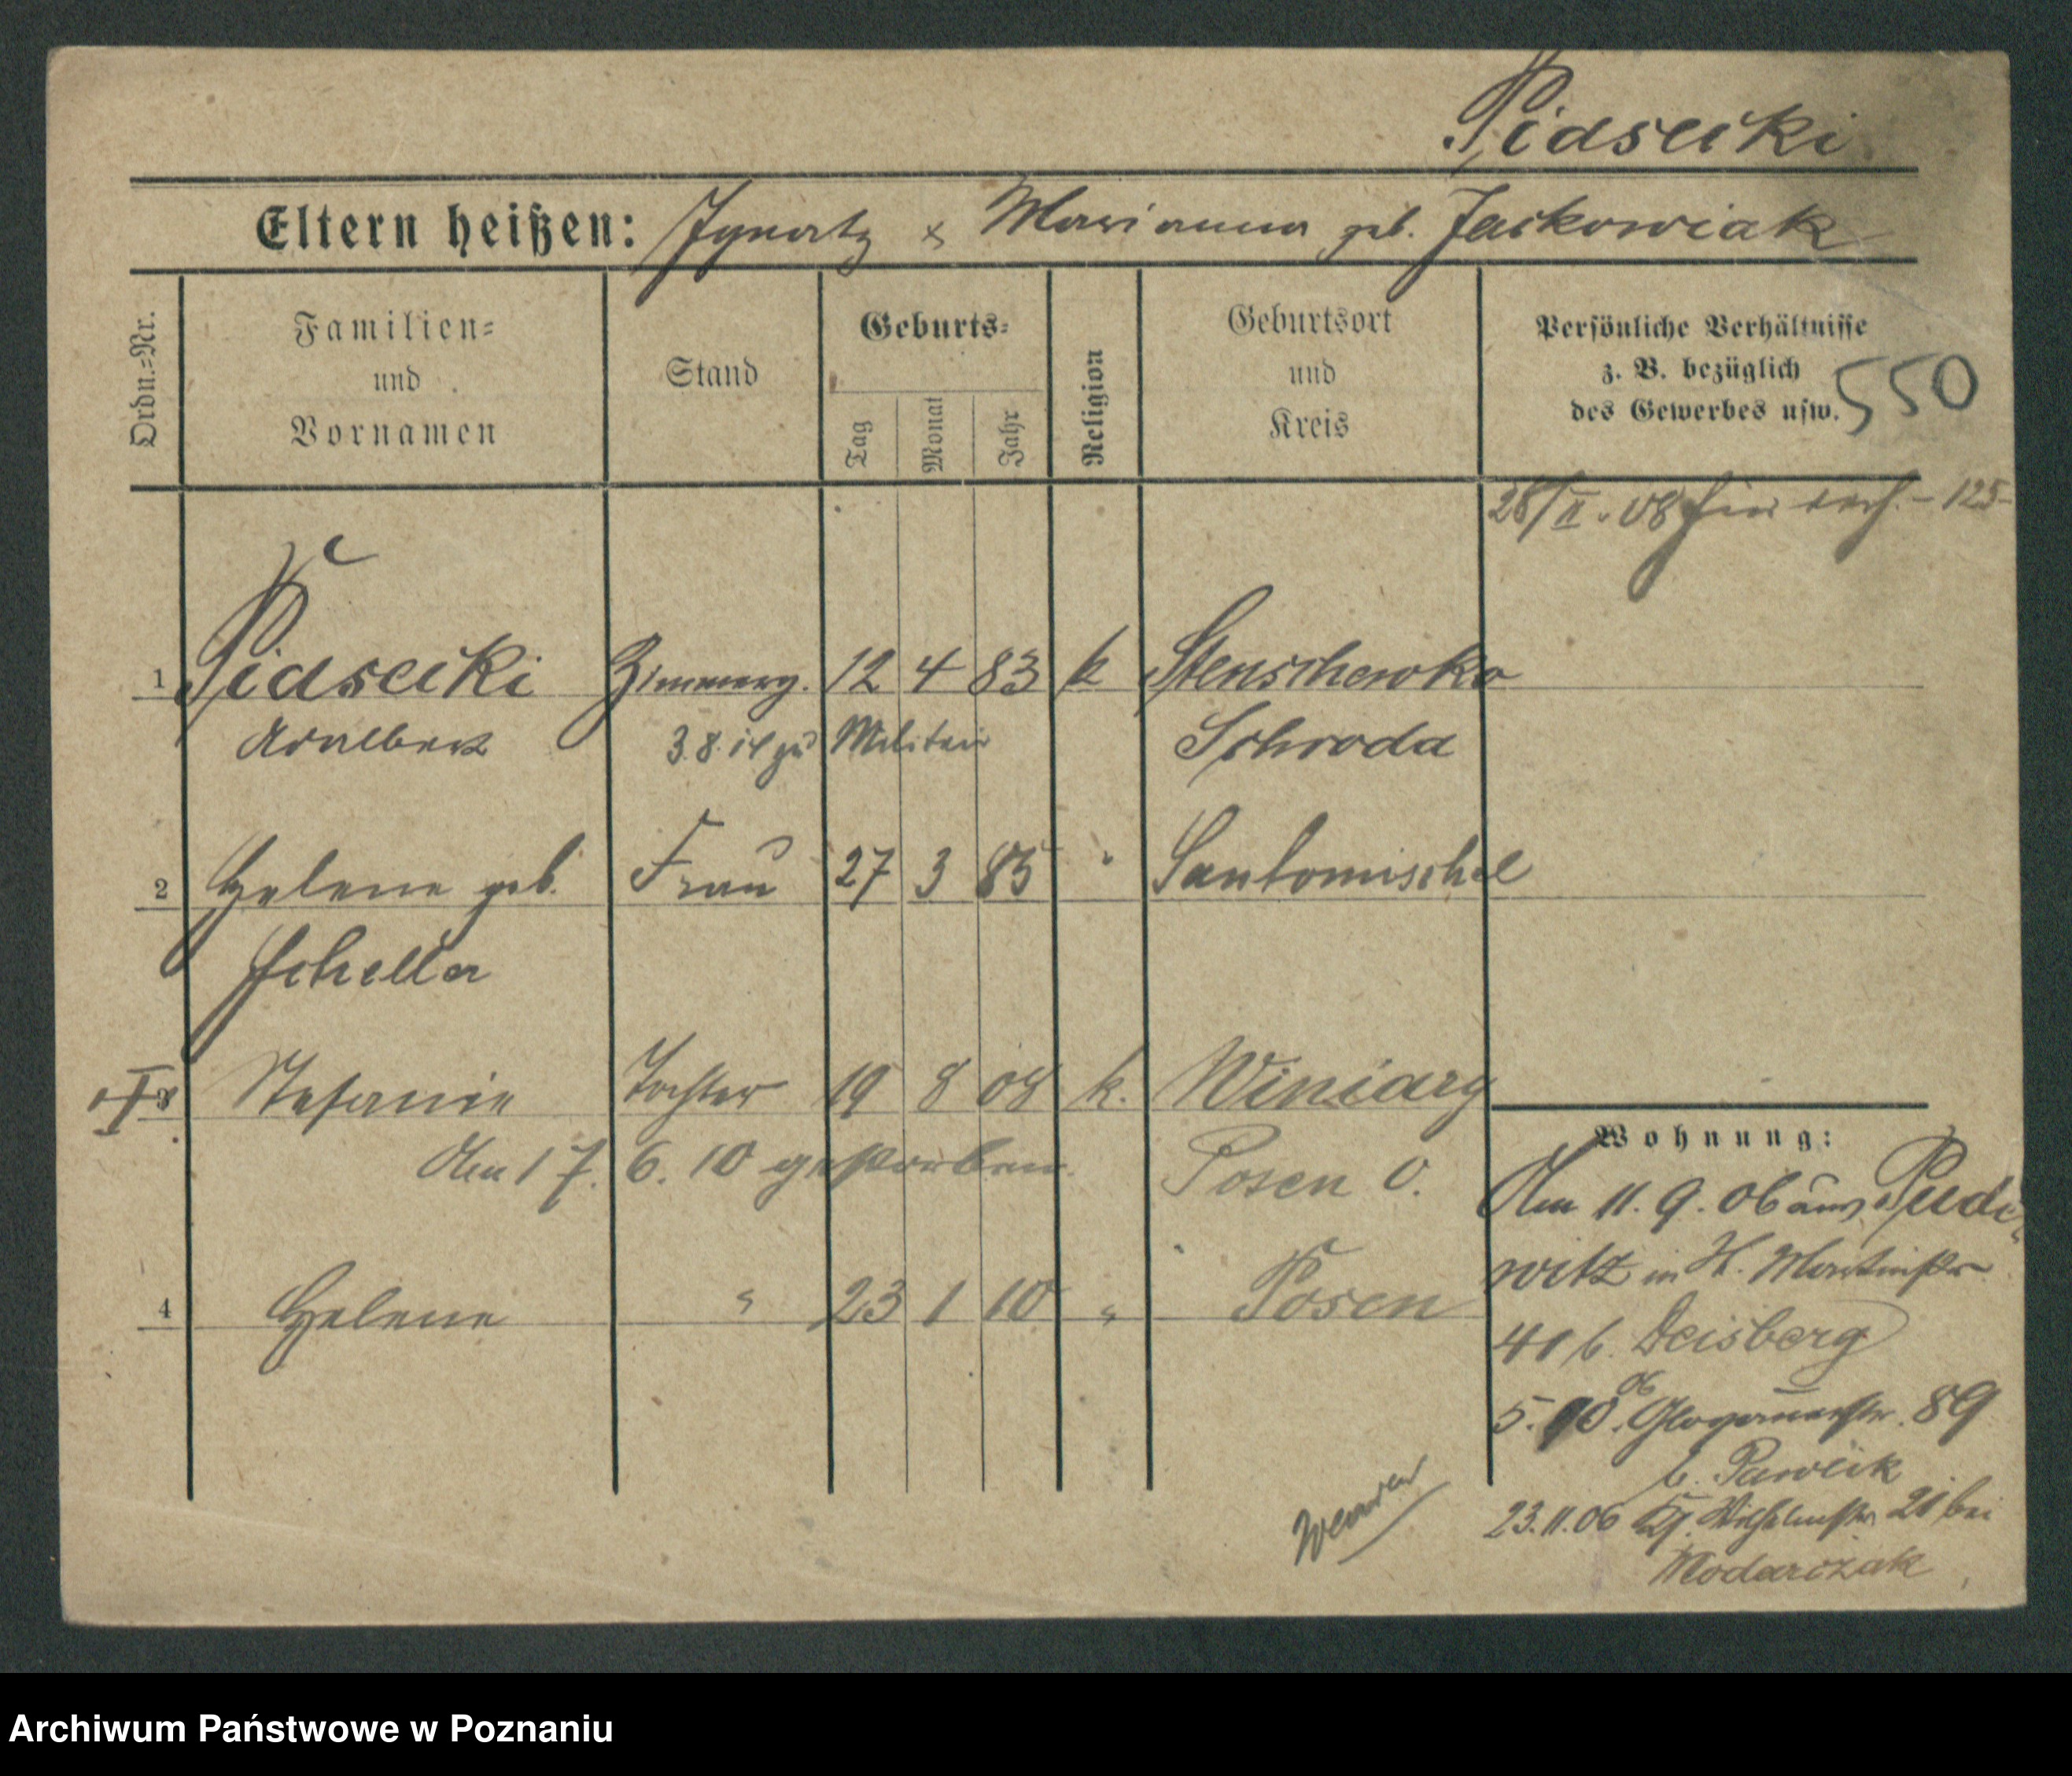 Pidsecki
Eltern heißen: Ignatz & Marianna geb. Jackowiak
Ordn.=Nr.
Familien=
und
Vornamen
Stand
Geburts=
Tag
Monat
Jahr
Religion
Geburtsort
und
Kreis
Persönliche Verhältnisse
z. B. bezüglich
des Gewerbes usw.
550
28/II. 08 für - 125-
1 Pidsecki Zimmerg. 12 4 83 k Stenschewko
Adalbert 3.8.14 zu Militair Schroda
2 Helene geb. Frau 27 3 85 " Santomischel
Scheller
3 Stefanie Tochter 19 8 08 k. Winiary
Am 17. 6. 10 gestorben. Posen O.
4 Helene " 23 1 10 " Posen
Wohnung:
Am 11. 9. 06 aus Pude-
witz in H. Martinstr
41 b. Deisberg
5. 10. 06 Glogauerstr. 89
b. Pawlik
23.11.06 Kl. Wilhelmstr 21 bei
Modarczak
Archiwum Państwowe w Poznaniu